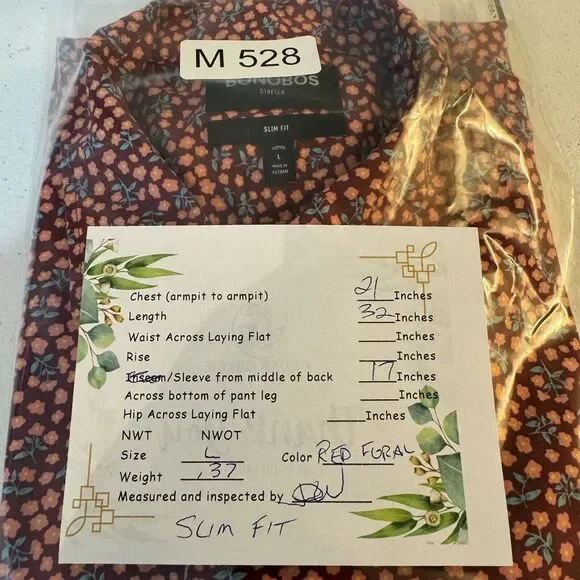 M 528
BONOBOS
STRETCH
SLIM FIT
LONG
L
MADE IN
VIETNAM
Chest (armpit to armpit) 21 Inches
Length 32 Inches
Waist Across Laying Flat ____Inches
Rise ____Inches
Inseam/Sleeve from middle of back 17 Inches
Across bottom of pant leg ____Inches
Hip Across Laying Flat ____Inches
NWT NWOT
Size L Color RED FORAL
Weight .37
Measured and inspected by
SLIM FIT